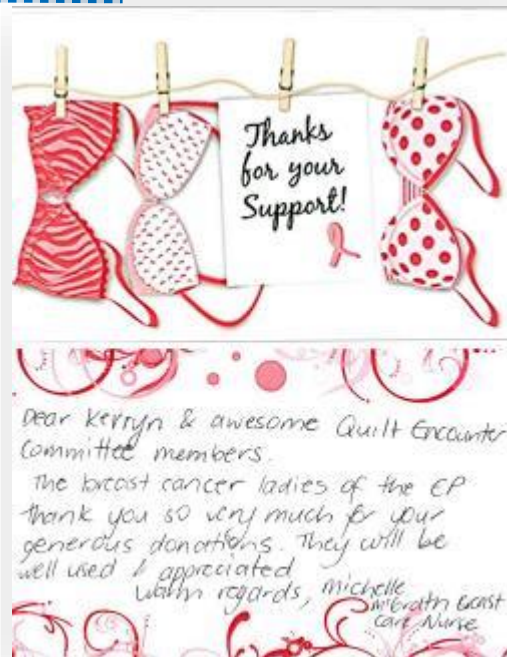 Thanks
for your
Support!
Dear Kerryn & awesome Quilt Encounter
Committee members.
The breast cancer ladies of the EP
thank you so very much for your
generous donations. They will be
well used & appreciated
Warm regards, Michelle
McGrath Breast
Care Nurse